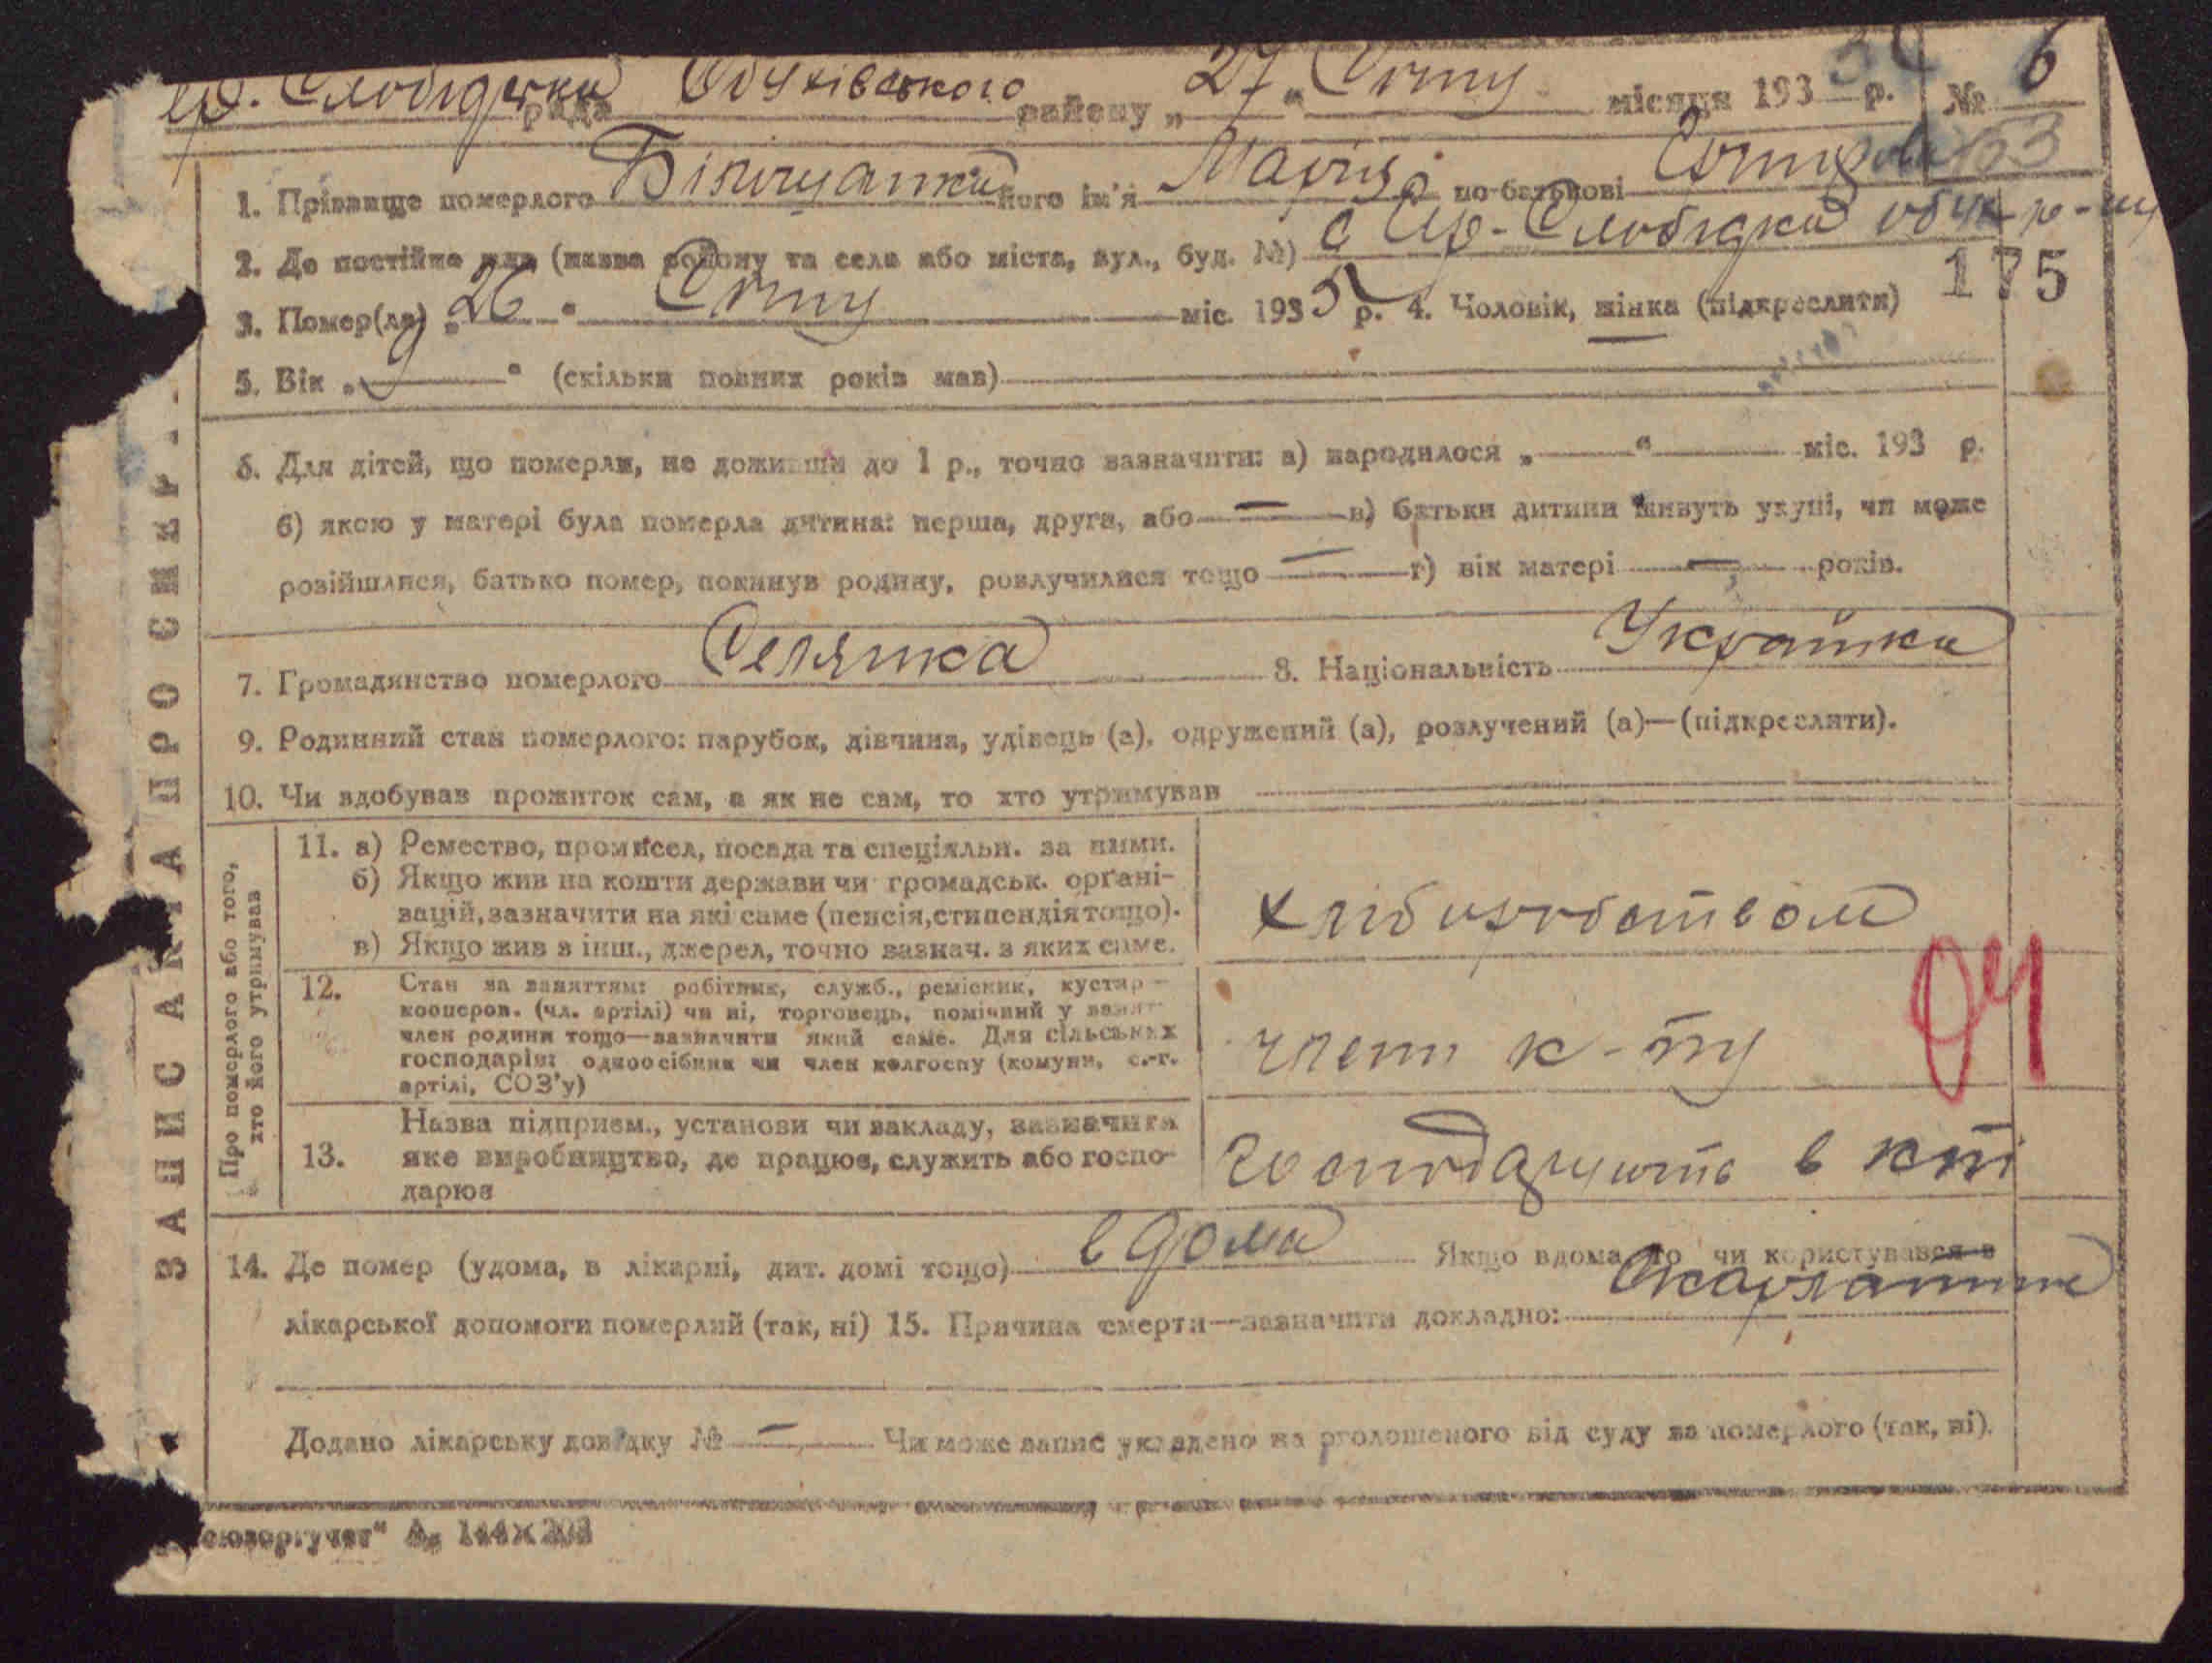 Слобідська рада Обухівського району „27“ Січня місяця 193 р. № 6
1. Прізвище померлого його ім'я Марія по-батькові
2. Де постійно жив (назва району та села або міста, вул., буд. №) с Кр-Слобідка обух р-ну
175
3. Помер(ла) „26“ Січня міс. 193 р. 4. Чоловік, жінка (підкреслити)
5. Вік „9“ (скільки повних років мав)
6. Для дітей, що померли, не доживши до 1 р., точно зазначити: а) народилося „ “ міс. 193 р.
б) якою у матері була померла дитина: перша, друга, або — в) батьки дитини живуть укупі, чи може
розійшлися, батько помер, покинув родину, розлучилися тощо — г) вік матері — років.
7. Громадянство померлого Селянка 8. Національність Українка
9. Родинний стан померлого: парубок, дівчина, удівець (а), одружений (а), розлучений (а)—(підкреслити).
10. Чи здобував прожиток сам, а як не сам, то хто утримував
Про померлого або того, хто його утримував
11. а) Ремество, промисел, посада та спеціяльн. за ними.
б) Якщо жив на кошти держави чи громадськ. орґані-
зацій, зазначити на які саме (пенсія, стипендія тощо).
в) Якщо жив з інш., джерел, точно зазнач. з яких саме.
хліборобством
12. Стан за заняттям: робітник, служб., ремісник, кустар-
кооперов. (чл. артілі) чи ні, торговець, помічний у занят.
член родини тощо—зазначити який саме. Для сільських
господарів: одноосібник чи член колгоспу (комуни, с.-г.
артілі, СОЗ'у)
член к-ту
04
13. Назва підприєм., установи чи закладу, зазначити
яке виробництво, де працює, служить або госпо-
дарює
господарують в кті
14. Де помер (удома, в лікарні, дит. домі тощо) вдома Якщо вдома, то чи користувався з
лікарської допомоги померлий (так, ні) 15. Причина смерти—зазначити докладно: Скарлатине
Додано лікарську довідку № — Чи може запис укладено на оголошеного від суду за померлого (так, ні).
„Союзоргучет“ А₅ 144×203
ЗАПИС АКТА ПРО СМЕР